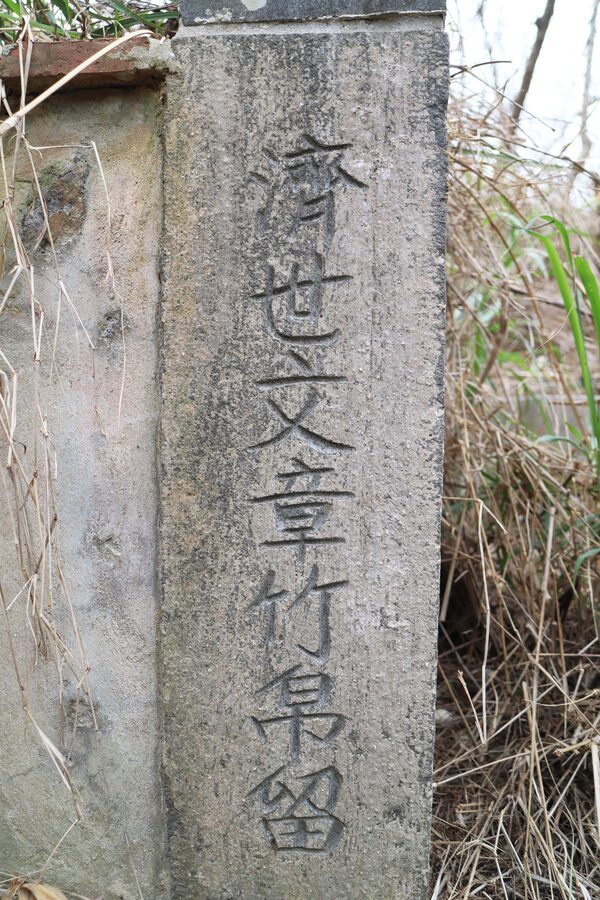 濟世文章竹帛留